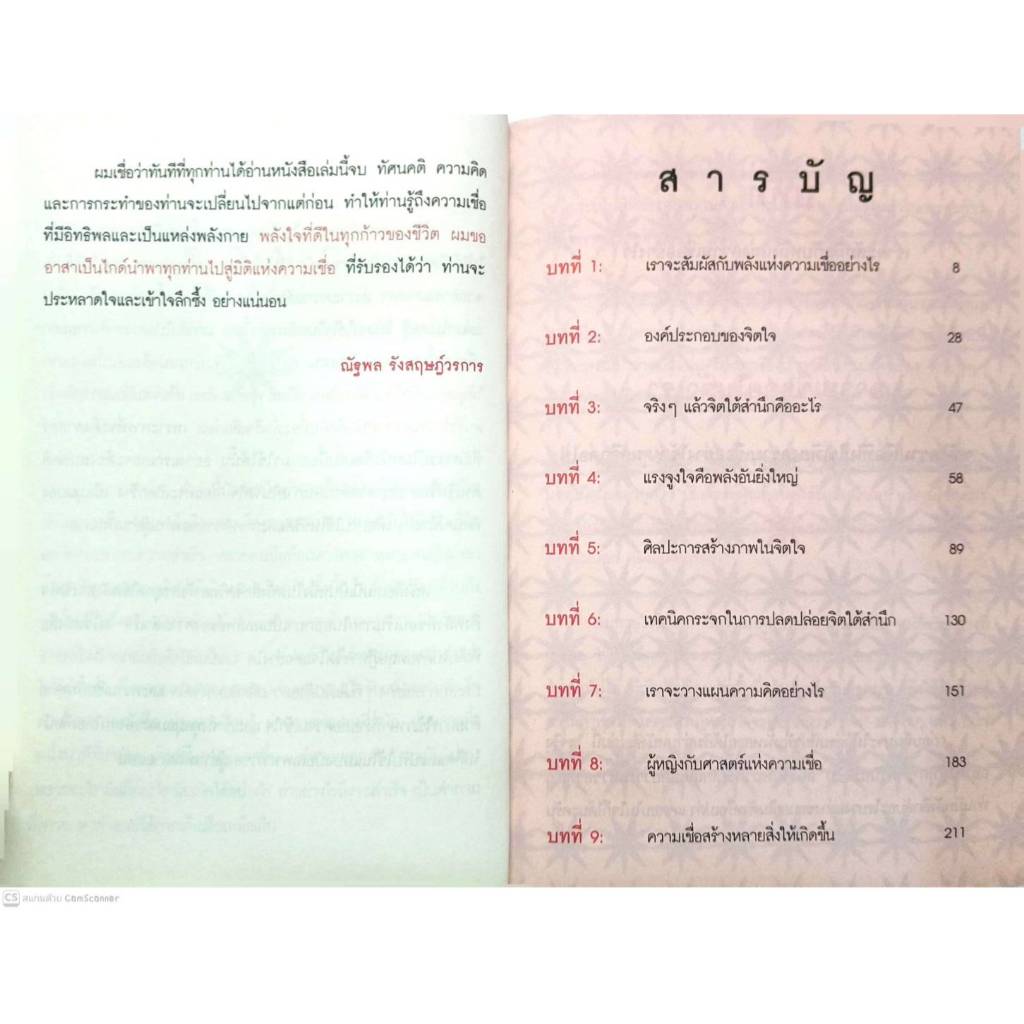 ผมเชื่อว่าทันทีที่ทุกท่านได้อ่านหนังสือเล่มนี้จบ ทัศนคติ ความคิด
และการกระทำของท่านจะเปลี่ยนไปจากแต่ก่อน ทำให้ท่านรู้ถึงความเชื่อ
ที่มีอิทธิพลและเป็นแหล่งพลังกาย พลังใจที่ดีในทุกก้าวของชีวิต ผมขอ
อาสาเป็นไกด์นำพาทุกท่านไปสู่มิติแห่งความเชื่อ ที่รับรองได้ว่า ท่านจะ
ประหลาดใจและเข้าใจลึกซึ้ง อย่างแน่นอน
ณัฐพล รังสฤษฎ์วรการ
สารบัญ
บทที่ 1: เราจะสัมผัสกับพลังแห่งความเชื่ออย่างไร 8
บทที่ 2: องค์ประกอบของจิตใจ 28
บทที่ 3: จริงๆ แล้วจิตใต้สำนึกคืออะไร 47
บทที่ 4: แรงจูงใจคือพลังอันยิ่งใหญ่ 58
บทที่ 5: ศิลปะการสร้างภาพในจิตใจ 89
บทที่ 6: เทคนิคกระจกในการปลดปล่อยจิตใต้สำนึก 130
บทที่ 7: เราจะวางแผนความคิดอย่างไร 151
บทที่ 8: ผู้หญิงกับศาสตร์แห่งความเชื่อ 183
บทที่ 9: ความเชื่อสร้างหลายสิ่งให้เกิดขึ้น 211
CS สแกนด้วย CamScanner